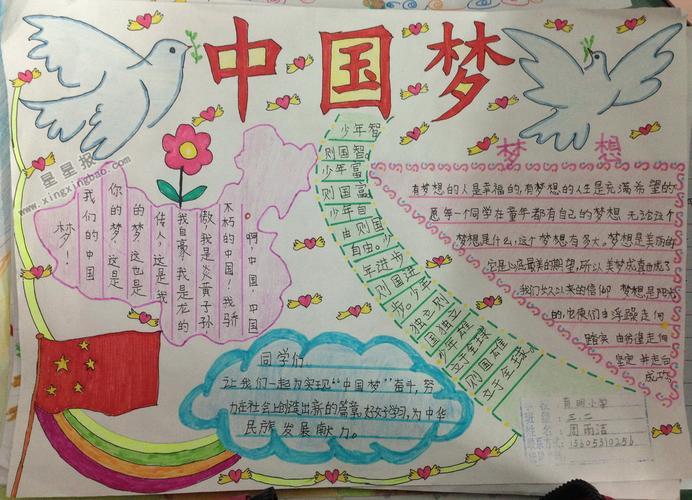 中国梦
星星报
www.xingxingbao.com
啊,中国,中国
不朽的中国!我骄
傲,我是炎黄子孙
我自豪,我是龙的
传人,这是我
的梦,这也是
你的梦,这是
我们的中国
梦!
少年智
则国智
少年富
则国富
少年自
由则国
自由。少
年进步
则国进
步。少年
独立则
国独立
少年雄
立于全球
则国雄
立于全球。
梦想
有梦想的人是幸福的,有梦想的人生是充满希望的
愿每一个同学在童年都有自己的梦想 无论这个
梦想是什么,这个梦想有多大,梦想是美丽的
它是心底最美的期望,所以美梦成真也成了
我们长久以来的信仰 梦想是阳光
的,它使人们由浮躁走向
踏实 由彷徨走向
坚定 并走向
成功
同学们:
让我们一起为实现"中国梦"奋斗,努
力在社会上创造出新的篇章,好好学习,为中华
民族发展献力。
小学
三.二
周雨洁
15605310256